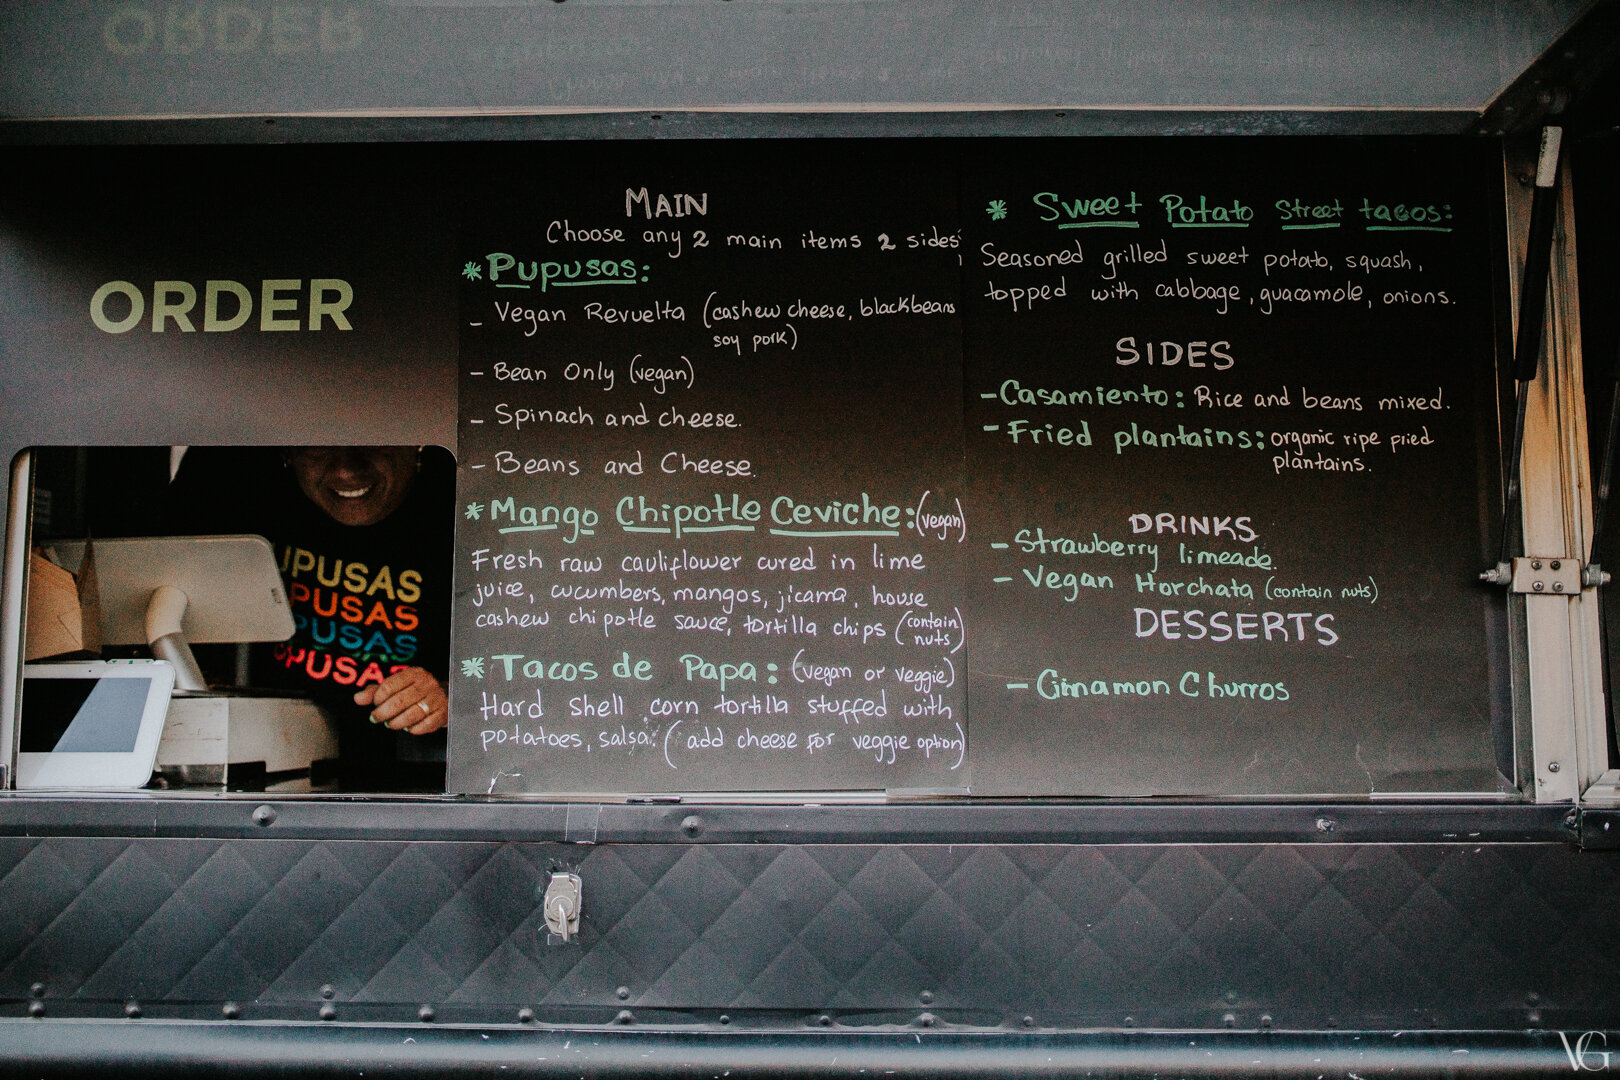 ORDER
MAIN
Choose any 2 main items 2 sides
* Pupusas:
- Vegan Revuelta (cashew cheese, blackbeans
soy pork)
- Bean Only (vegan)
- Spinach and cheese.
- Beans and Cheese.
* Mango Chipotle Ceviche: (vegan)
Fresh raw cauliflower cured in lime
juice, cucumbers, mangos, jicama, house
cashew chipotle sauce, tortilla chips (contain
nuts)
* Tacos de Papa: (vegan or veggie)
Hard shell corn tortilla stuffed with
potatoes, salsa. (add cheese for veggie option)
* Sweet Potato Street tacos:
Seasoned grilled sweet potato, squash,
topped with cabbage, guacamole, onions.
SIDES
- Casamiento: Rice and beans mixed.
- Fried plantains: organic ripe fried
plantains.
DRINKS
- Strawberry limeade.
- Vegan Horchata (contain nuts)
DESSERTS
- Cinnamon Churros
UPUSAS
PUSAS
PUSAS
VG